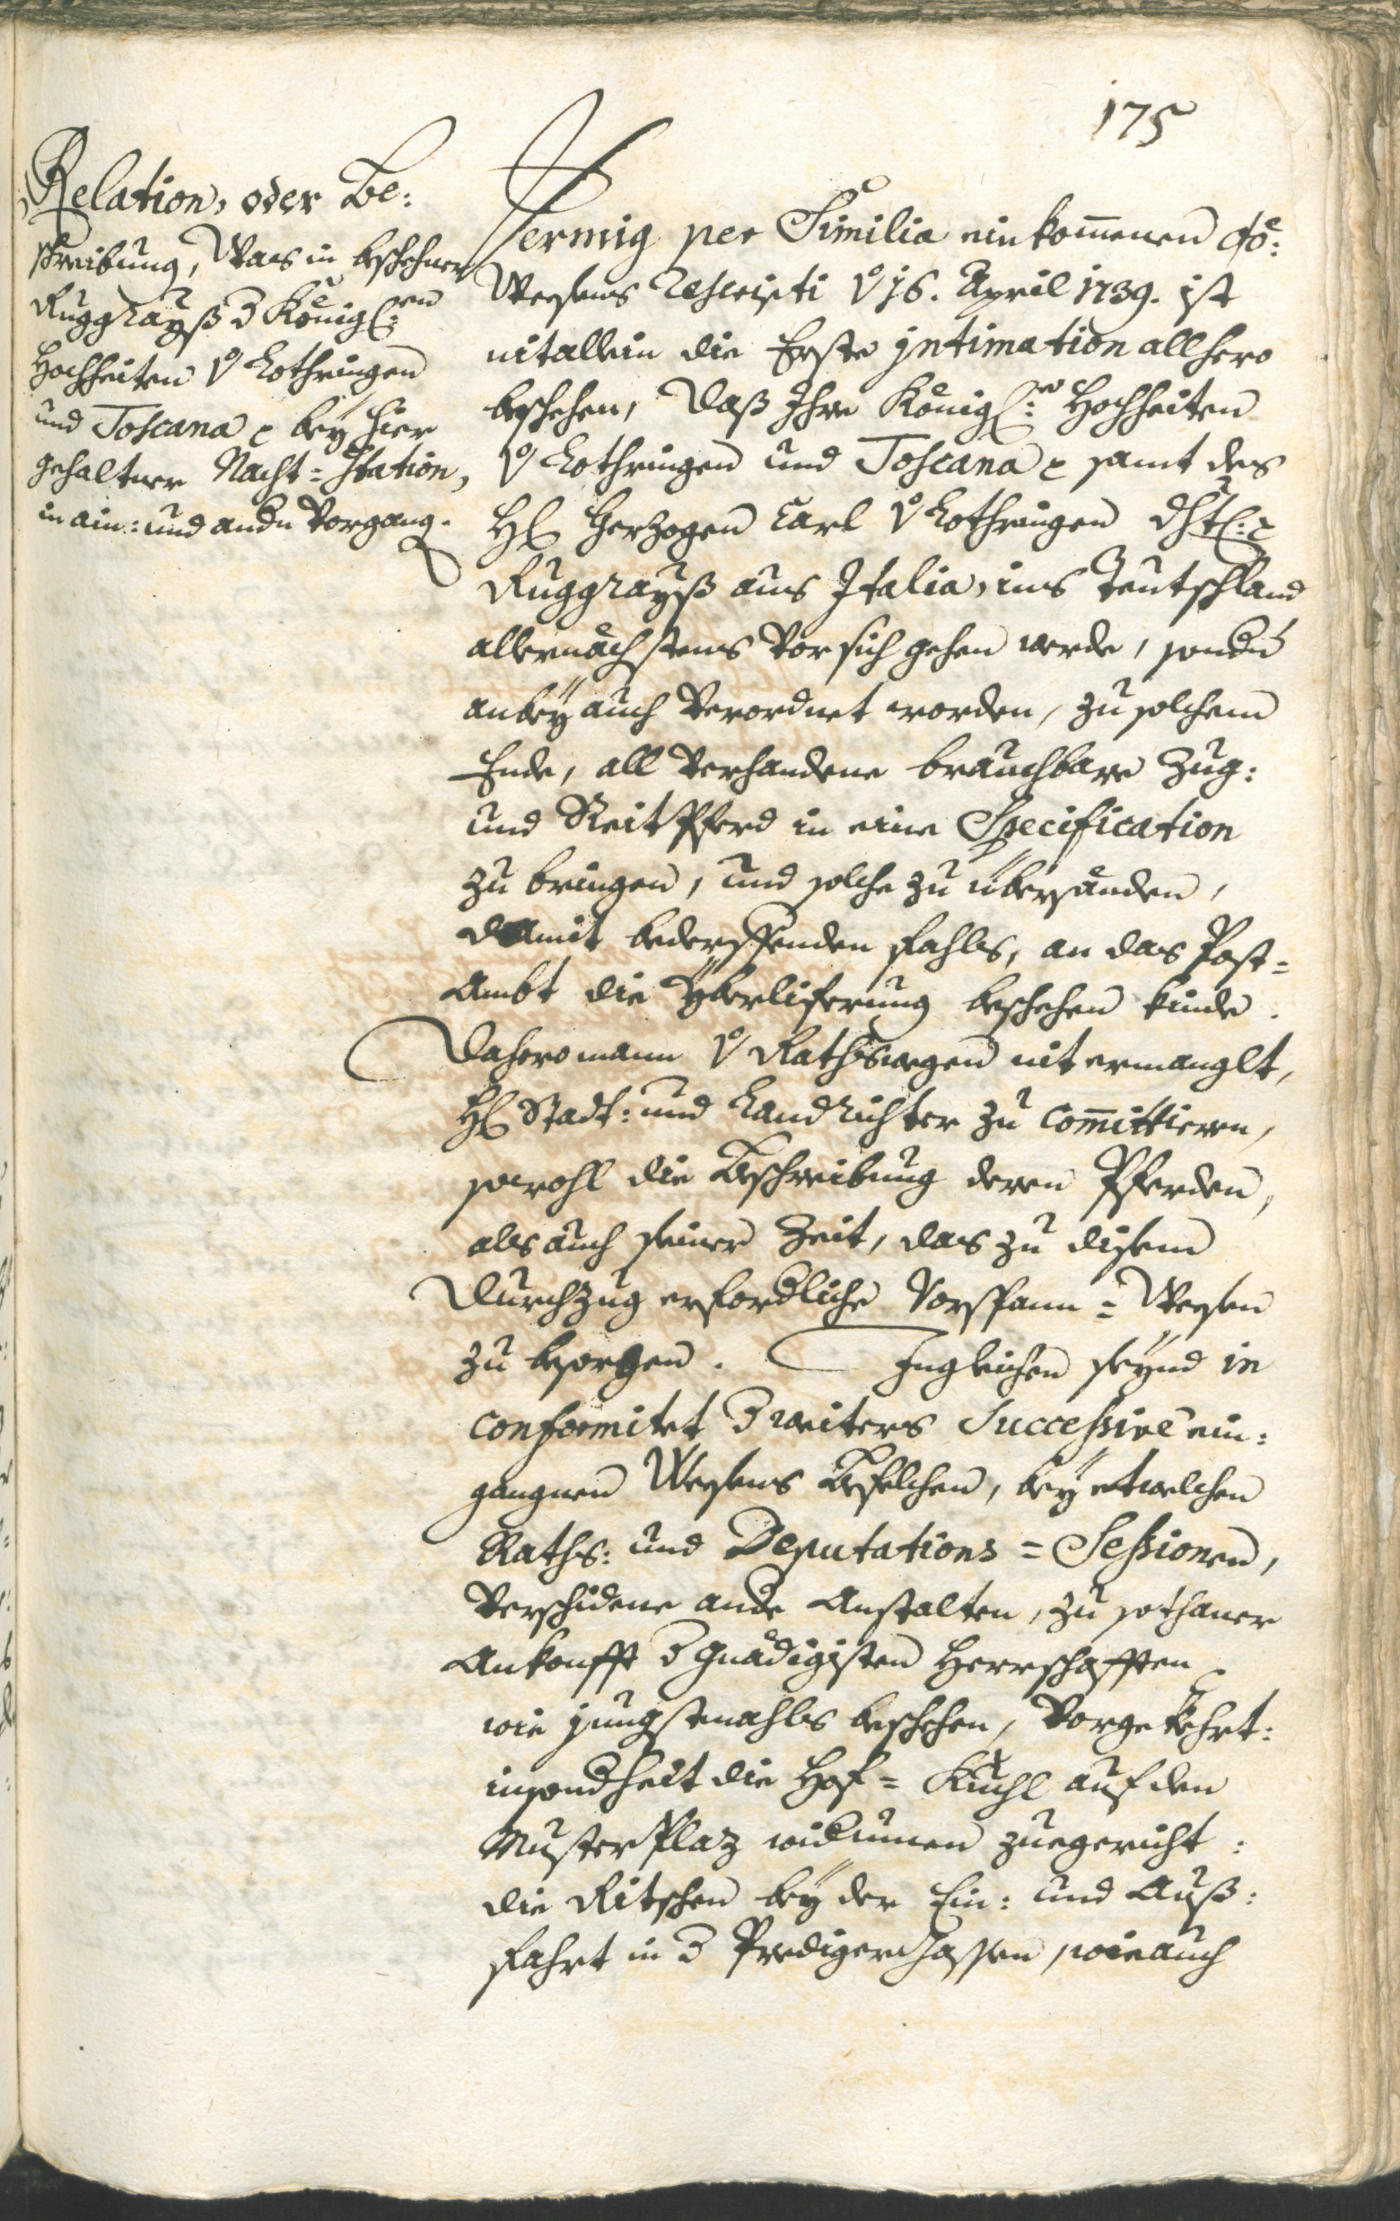 175
Relation, oder Be:
schreibung, Was in beschehner
Ruggrayß d Königl:en
Hochheiten v Lothringen
und Toscana e bey hier
gehaltner Nacht=Station,
in ain: und andn Vorgang.
Vermig per Similia einkom̄enen Gö:
Wesens Rescripti v 16. April 1739. ist
nit allein die Erste jntimation allhero
beschehen, daß Ihre Königl:e Hochheiten
v Lothringen und Toscana e samt des
Hl Herzogen Carl v Lothringen dhtl: e
Ruggrayß aus Italia, ins Teutschland
allernächstens Vor sich gehen werde, sondn
anbey auch Verordnet worden, zu solchem
Ende, all Verhandene brauchbare Zug:
und Reit Pferd in eine Specification
zu bringen, und solche zu übersänden,
damit bederffenden fahls, an das Post=
Ambt die Yberliferung beschehen kinde.
Dahero mann v Raths wegen nit ermanglt,
Hl Stadt: und Landrichter zu Com̄ittieren,
sowohl die Beschreibung deren Pferden,
als auch seiner Zeit, das zu disem
Durchzug erfordliche Vorspann=Wesen
zu besorgen. Ingleichen seynd in
conformitet d weiters Successive ein:
gangnen Wesens Befelchen, bey etwelchen
Raths: und Deputations=Sessionen,
Verschidene ande Anstalten, zu sothaner
Ankonfft d gnädigisten Herrschafften
wie jungstmahls beschehen, Vorgekehrt:
insondheit die Hof=Kuchl auf den
Musterplaz widumen zuegericht:
die Ritschen bey der Ein: und Auß:
fahrt in d Prediger Gassen, wie auch